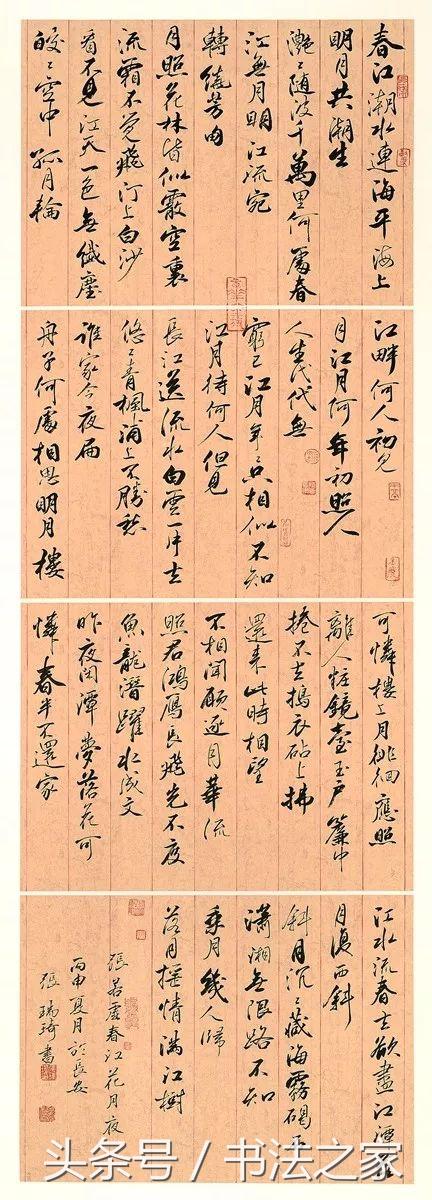 春江潮水連海平海上
明月共潮生
灧〻隨波千萬里何處春
江無月明江流宛
轉繞芳甸
月照花林皆似霰空裏
流霜不覺飛汀上白沙
看不見江天一色無纖塵
皎〻空中孤月輪
江畔何人初見
月江月何年初照人
人生代代無
窮已江月年〻只相似不知
江月待何人但見
長江送流水白雲一片去
悠〻青楓浦上不勝愁
誰家今夜扁
舟子何處相思明月樓
可憐樓上月徘徊應照
離人粧鏡臺玉戶簾中
捲不去搗衣砧上拂
還來此時相望
不相聞願逐月華流
照君鴻雁長飛光不度
魚龍潛躍水成文
昨夜閑潭夢落花可
憐春半不還家
江水流春去欲盡江潭落
月復西斜
斜月沉〻藏海霧碣石
瀟湘無限路不知
乘月幾人歸
落月搖情滿江樹
張若虛春江花月夜
丙申夏月於長安
張瑞琦書
头条号／书法之家